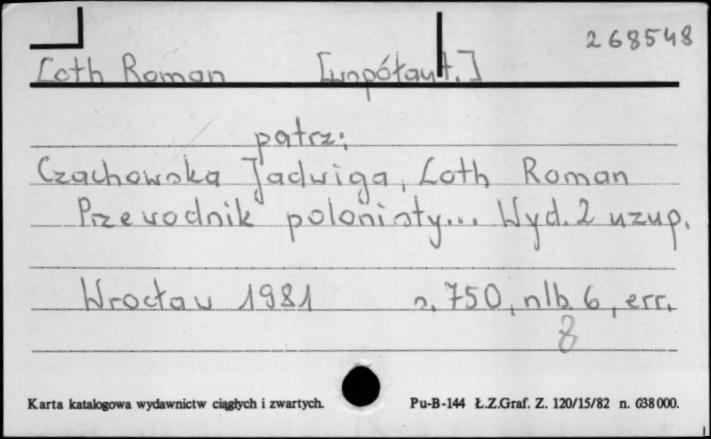 268548
Loth Roman [współaut.]
patrz:
Czachowska Jadwiga, Loth Roman
Przewodnik polonisty... Wyd. 2 uzup.
Wrocław 1981 s. 750, nlb 6, err.
8
Karta katalogowa wydawnictw ciągłych i zwartych. Pu-B-144 Ł.Z.Graf. Z. 120/15/82 n. 638000.